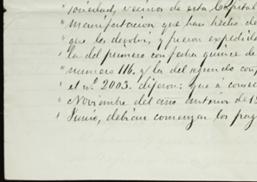 " sociedad, vecinos de esta Capital
" manifestacion que han hecho de
" que les devolví, y fueron expedida
" la del primero con fecha quince de
" numero 116. y la del segundo con
" el nº 2003. dijeron: que á conse
" Noviembre del año anterior de 18
" Junio, debian comenzar los pag